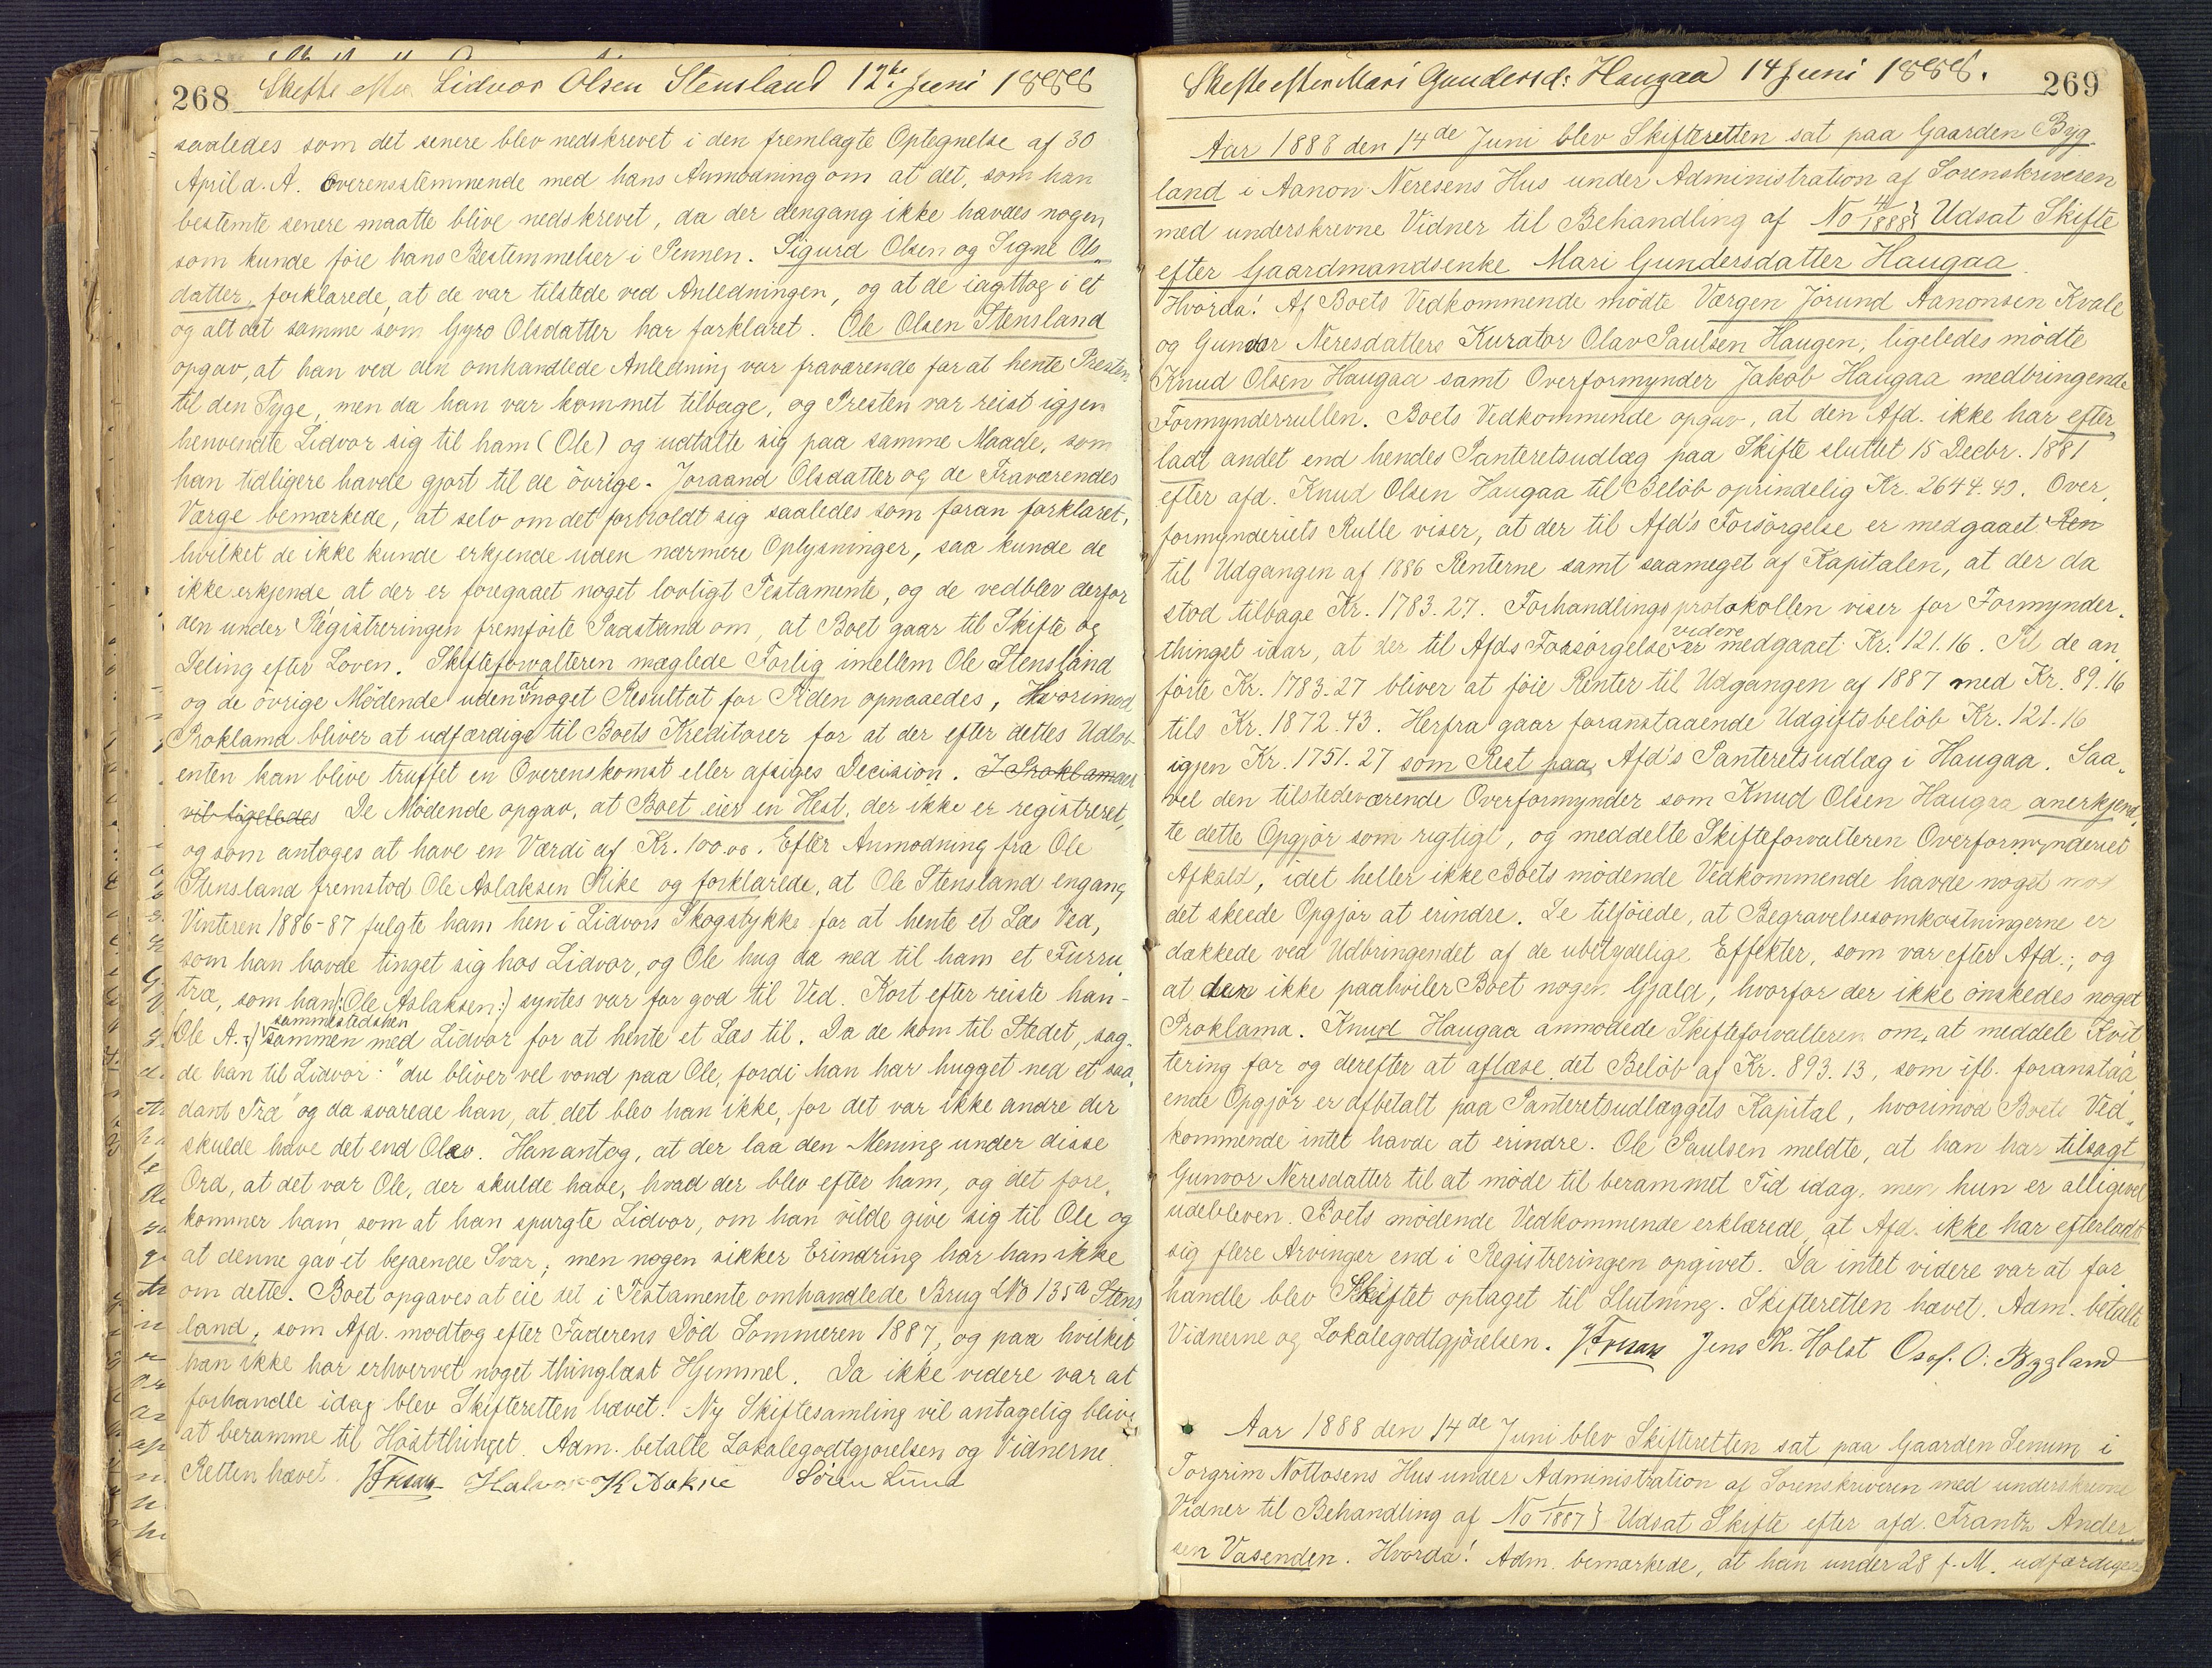 268 Skifte efter Lidvor Olsen Stensland 12te Juni 1888
saaledes som det senere blev nedskrevet i den fremlagte Optegnelse af 30
April d. A. Overensstemmende med hans Anmodning om at det, som han
bestemte senere maatte blive nedskrevet, da der dengang ikke havdes nogen,
som kunde føie hans Bestemmelser i Pennen. Sigurd Olsen og Signe Ols-
datter, forklarede, at de var tilstede ved Anledningen, og at de iagttog i et
og alt det samme som Gyro Olsdatter har forklaret. Ole Olsen Stensland
opgav, at han ved den omhandlede Anledning var fraværende for at hente Presten
til den Syge, men da han var kommet tilbage, og Presten var reist igjen
henvendte Lidvor sig til ham (Ole) og udtalte sig paa samme Maade, som
han tidligere havde gjort til de övrige. Joraand Olsdatter og de Fraværendes
Værge bemærkede, at selv om det forholdt sig saaledes som foran forklaret,
hvilket de ikke kunde erkjende uden nærmere Oplysninger, saa kunde de
ikke erkjende at der er foregaaet noget lovligt Testamente, og de vedblev derfor
den under Registreringen fremførte Paastand om, at Boet gaar til Skifte og
Deling efter Loven. Skifteforvalteren mæglede Forlig imellem Ole Stensland
og de övrige Mödende uden at noget Resultat for Tiden opnaaedes, Hvorimod
Proklama bliver at udfærdige til Boets Kreditorer for at der efter dettes Udløb
enten kan blive truffet en Overenskomst eller afsiges Decision. I Proklamaet
vil ligeledes De Mödende opgav, at Boet eier en Hest, der ikke er registreret,
og som antages at have en Værdi af Kr. 100.00. Efter Anmodning fra Ole
Stensland fremstod Ole Aslaksen Rike og forklarede, at Ole Stensland engang
Vinteren 1886-87 fulgte ham hen i Lidvors Skogstykke for at hente et Læs Ved,
som han havde tinget sig hos Lidvor, og Ole hug da ned til ham et Furru
træ, som han (: Ole Aslaksen :) syntes var for god til Ved. Kort efter reiste han -
(Ole A. :) sammestedshen sammen med Lidvor for at hente et Læs til. Da de kom til Stedet, sag-
de han til Lidvor: "du bliver vel vond paa Ole, fordi han har hugget ned et saa-
dant Træ" og da svarede han, at det blev han ikke, for det var ikke andre der
skulde have det end Olav. Han antog, at der laa den Mening under disse
Ord, at det var Ole, der skulde have, hvad der blev efter ham, og det fore-
kommer ham, som at han spurgte Lidvor, om han vilde give sig til Ole og
at denne gav et bejaende Svar, men nogen sikker Erindring har han ikke
om dette. Boet opgaves at eie det i Testamente omhandlede Brug LNo 135a Stens
land, som Afd. modtog efter Faderens Död Sommeren 1887, og paa hvilket
han ikke har erhvervet noget thinglæst Hjemmel. Da ikke videre var at
forhandle idag blev Skifteretten hævet. Ny Skiftesamling vil antagelig blive
at beramme til Höstthinget. Adm. betalte Lokalegodtgjørelsen og Vidnerne.
Retten hævet. Halvor K Søren Lund
Skifte efter Mari Gundersd: Haugaa 14 Juni 1888. 269
Aar 1888 den 14de Juni blev Skifteretten sat paa Gaarden Byg-
land i Aanon Neresens Hus under Administration af Sorenskriveren
med underskrevne Vidner til Behandling af No 4/1888} Udsat Skifte
efter Gaardmandsenke Mari Gundersdatter Haugaa.
Hvorda! Af Boets Vedkommende mödte Værgen Jörund Aanonsen Kvale
og Gunvor Neresdatters Kurator Olav Paulsen Haugen, ligeledes mödte
Knud Olsen Haugaa samt Overformynder Jakob Haugaa medbringende
Formynderrullen. Boets Vedkommende opgav, at den Afd. ikke har efter
ladt andet end hendes Panteretsudlæg paa Skifte sluttet 15 Decbr. 1881
efter afd. Knud Olsen Haugaa til Beløb oprindelig Kr. 2644.40. Over-
formynderiets Rulle viser, at der til Afd's Forsörgelse er medgaaet Ren
til Udgangen af 1886 Renterne samt saameget af Kapitalen, at der da
stod tilbage Kr. 1783.27. Forhandlingsprotokollen viser for Formynder-
thinget iaar, at der til Afds Forsörgelse er videre medgaaet Kr. 121.16. Til de an
førte Kr. 1783.27 bliver at föie Renter til Udgangen af 1887 med Kr. 89.16
tils Kr. 1872.43. Herfra gaar foranstaaende Udgiftsbeløb Kr. 121.16
igjen Kr. 1751.27 som Rest paa Afd's Panteretsudlæg i Haugaa. Saa-
vel den tilstedeværende Overformynder som Knud Olsen Haugaa anerkjend-
te dette Opgjör som rigtigt, og meddelte Skifteforvalteren Overformynderiet
Afkald, idet heller ikke Boets mödende Vedkommende havde noget mod
det skeede Opgjör at erindre. De tilföiede, at Begravelsesomkostningerne er
dækkede ved Udbringendet af de ubetydelige Effekter, som var efter Afd.; og
at der ikke paahviler Boet nogen Gjæld, hvorfor der ikke önskedes noget
Proklama. Knud Haugaa anmodede Skifteforvalteren om at meddele Kvit
tering for og derefter at aflæse det Beløb af Kr. 893.13, som ifl. foranstaa
ende Opgjör er afbetalt paa Panteretsudlæggets Kapital, hvorimod Boets Ved-
kommende intet havde at erindre. Ole Paulsen meldte, at han har tilsagt
Gunvor Neresdatter til at möde til berammet Tid idag, men hun er alligevel
udebleven. Boets mödende Vedkommende erklærede, at Afd. ikke har efterladt
sig flere Arvinger end i Registreringen opgivet. Da intet videre var at for
handle blev Skiftet optaget til Slutning. Skifteretten hævet. Adm. betalte
Vidnerne og Lokalegodtgjörelsen. Jens Th. Holst O. Bygland
Aar 1888 den 14de Juni blev Skifteretten sat paa Gaarden Senum i
Torgrim Nottosens Hus under Administration af Sorenskriveren med underskrevne
Vidner til Behandling af No 1/1887} Udsat Skifte efter afd. Frantz Ander-
sen Vasenden. Hvorda! Adm. bemærkede, at han under 28 f. M. udfærdigede